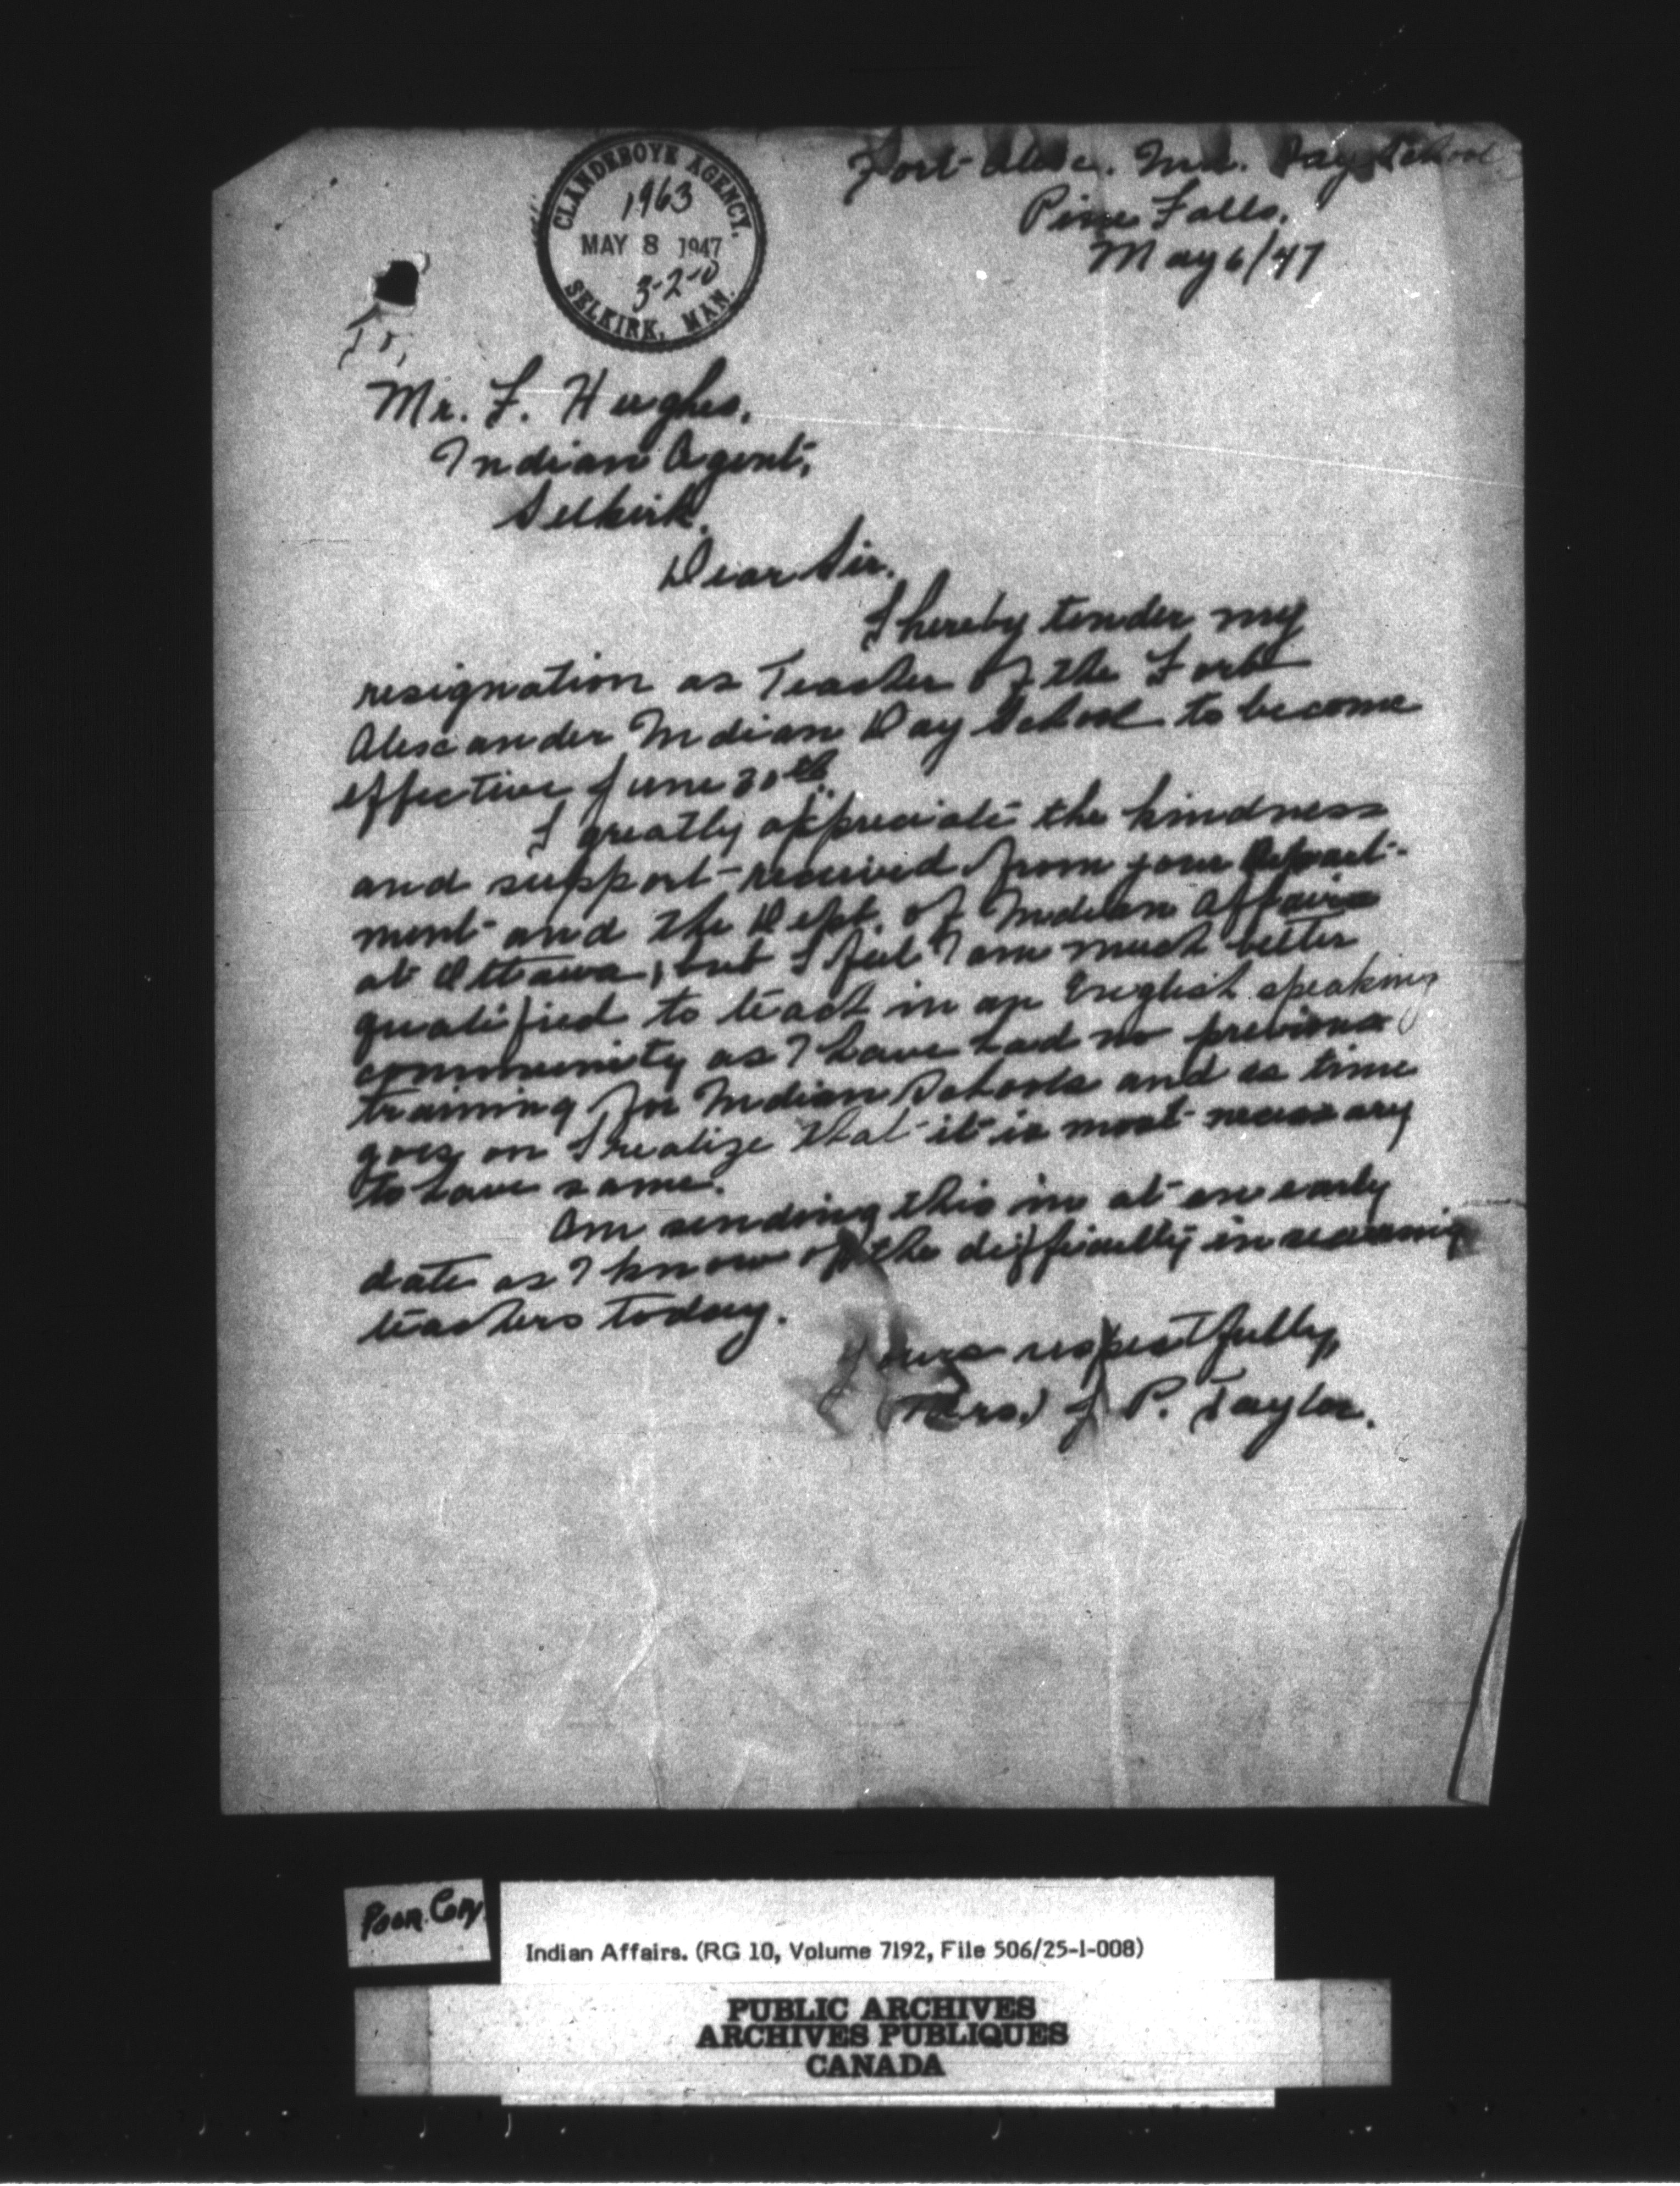 Fort Alex. Ind. Day School
Pine Falls,
May 6/47
CLANDEBOYE AGENCY.
1963
MAY 8 1947
3-2-0
SELKIRK, MAN.
To,
Mr. F. Hughes,
Indian Agent,
Selkirk.
Dear Sir.
I hereby tender my
resignation as Teacher of the Fort
Alexander Indian Day School to become
effective June 30th.
I greatly appreciate the kindness
and support received from your Depart-
ment and the Dept. of Indian Affairs
at Ottawa, but I feel I am much better
qualified to teach in an English speaking
community as I have had no previous
training for Indian Schools and as time
goes on I realize that it is most necessary
to have same.
Am sending this in at an early
date as I know of the difficulty in securing
teachers today.
Yours respectfully,
(Mrs.) J. P. Taylor.
Poor Copy
Indian Affairs. (RG 10, Volume 7192, File 506/25-1-008)
PUBLIC ARCHIVES
ARCHIVES PUBLIQUES
CANADA